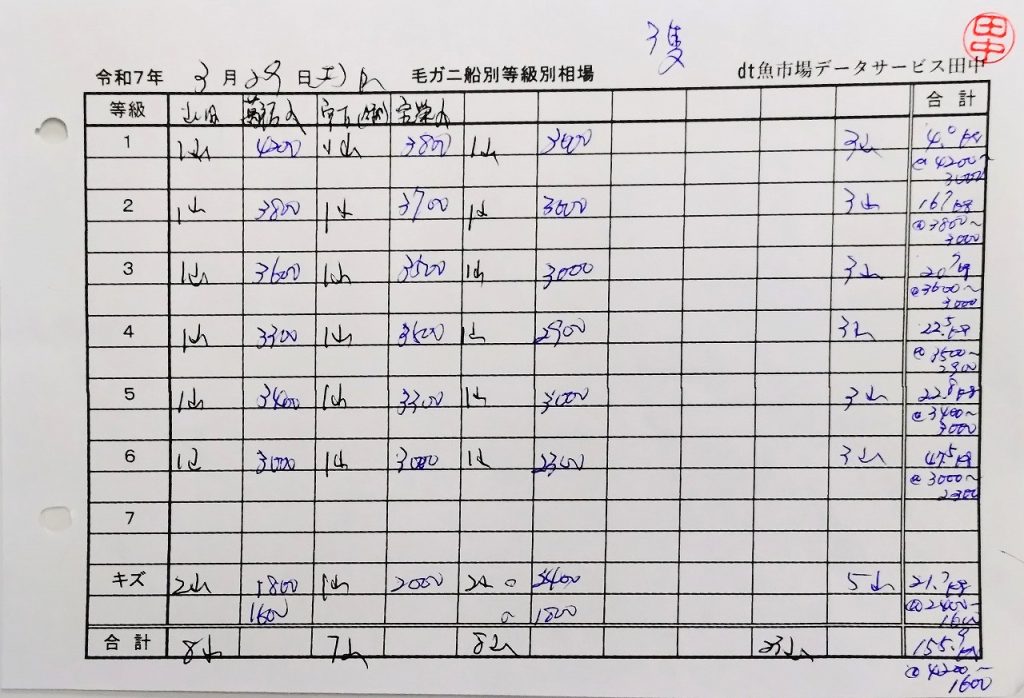 3隻
田中
令和7年 3月29日(土)
毛ガニ船別等級別相場
dt魚市場データサービス田中
等級 合計
1 1山 4200 1山 3800 1山 3山
@4200~
2 1山 3800 1山 3700 1山 3000 3山
@3800~
3000
3 1山 3600 1山 3500 1山 3000 3山
@3600~
3000
4 1山 3300 1山 3500 1山 2900 3山 22.5kg
@3500~
2900
5 1山 3400 1山 3300 1山 3000 3山 22.8kg
@3400~
3000
6 1山 3000 1山 3000 1山 2300 3山 47.5kg
@3000~
2300
7
キズ 2山 1800 1山 2000 2山 2400 5山
@2400~
1600 1800 1600
合計 8山 7山 8山 23山
@4200~
1600